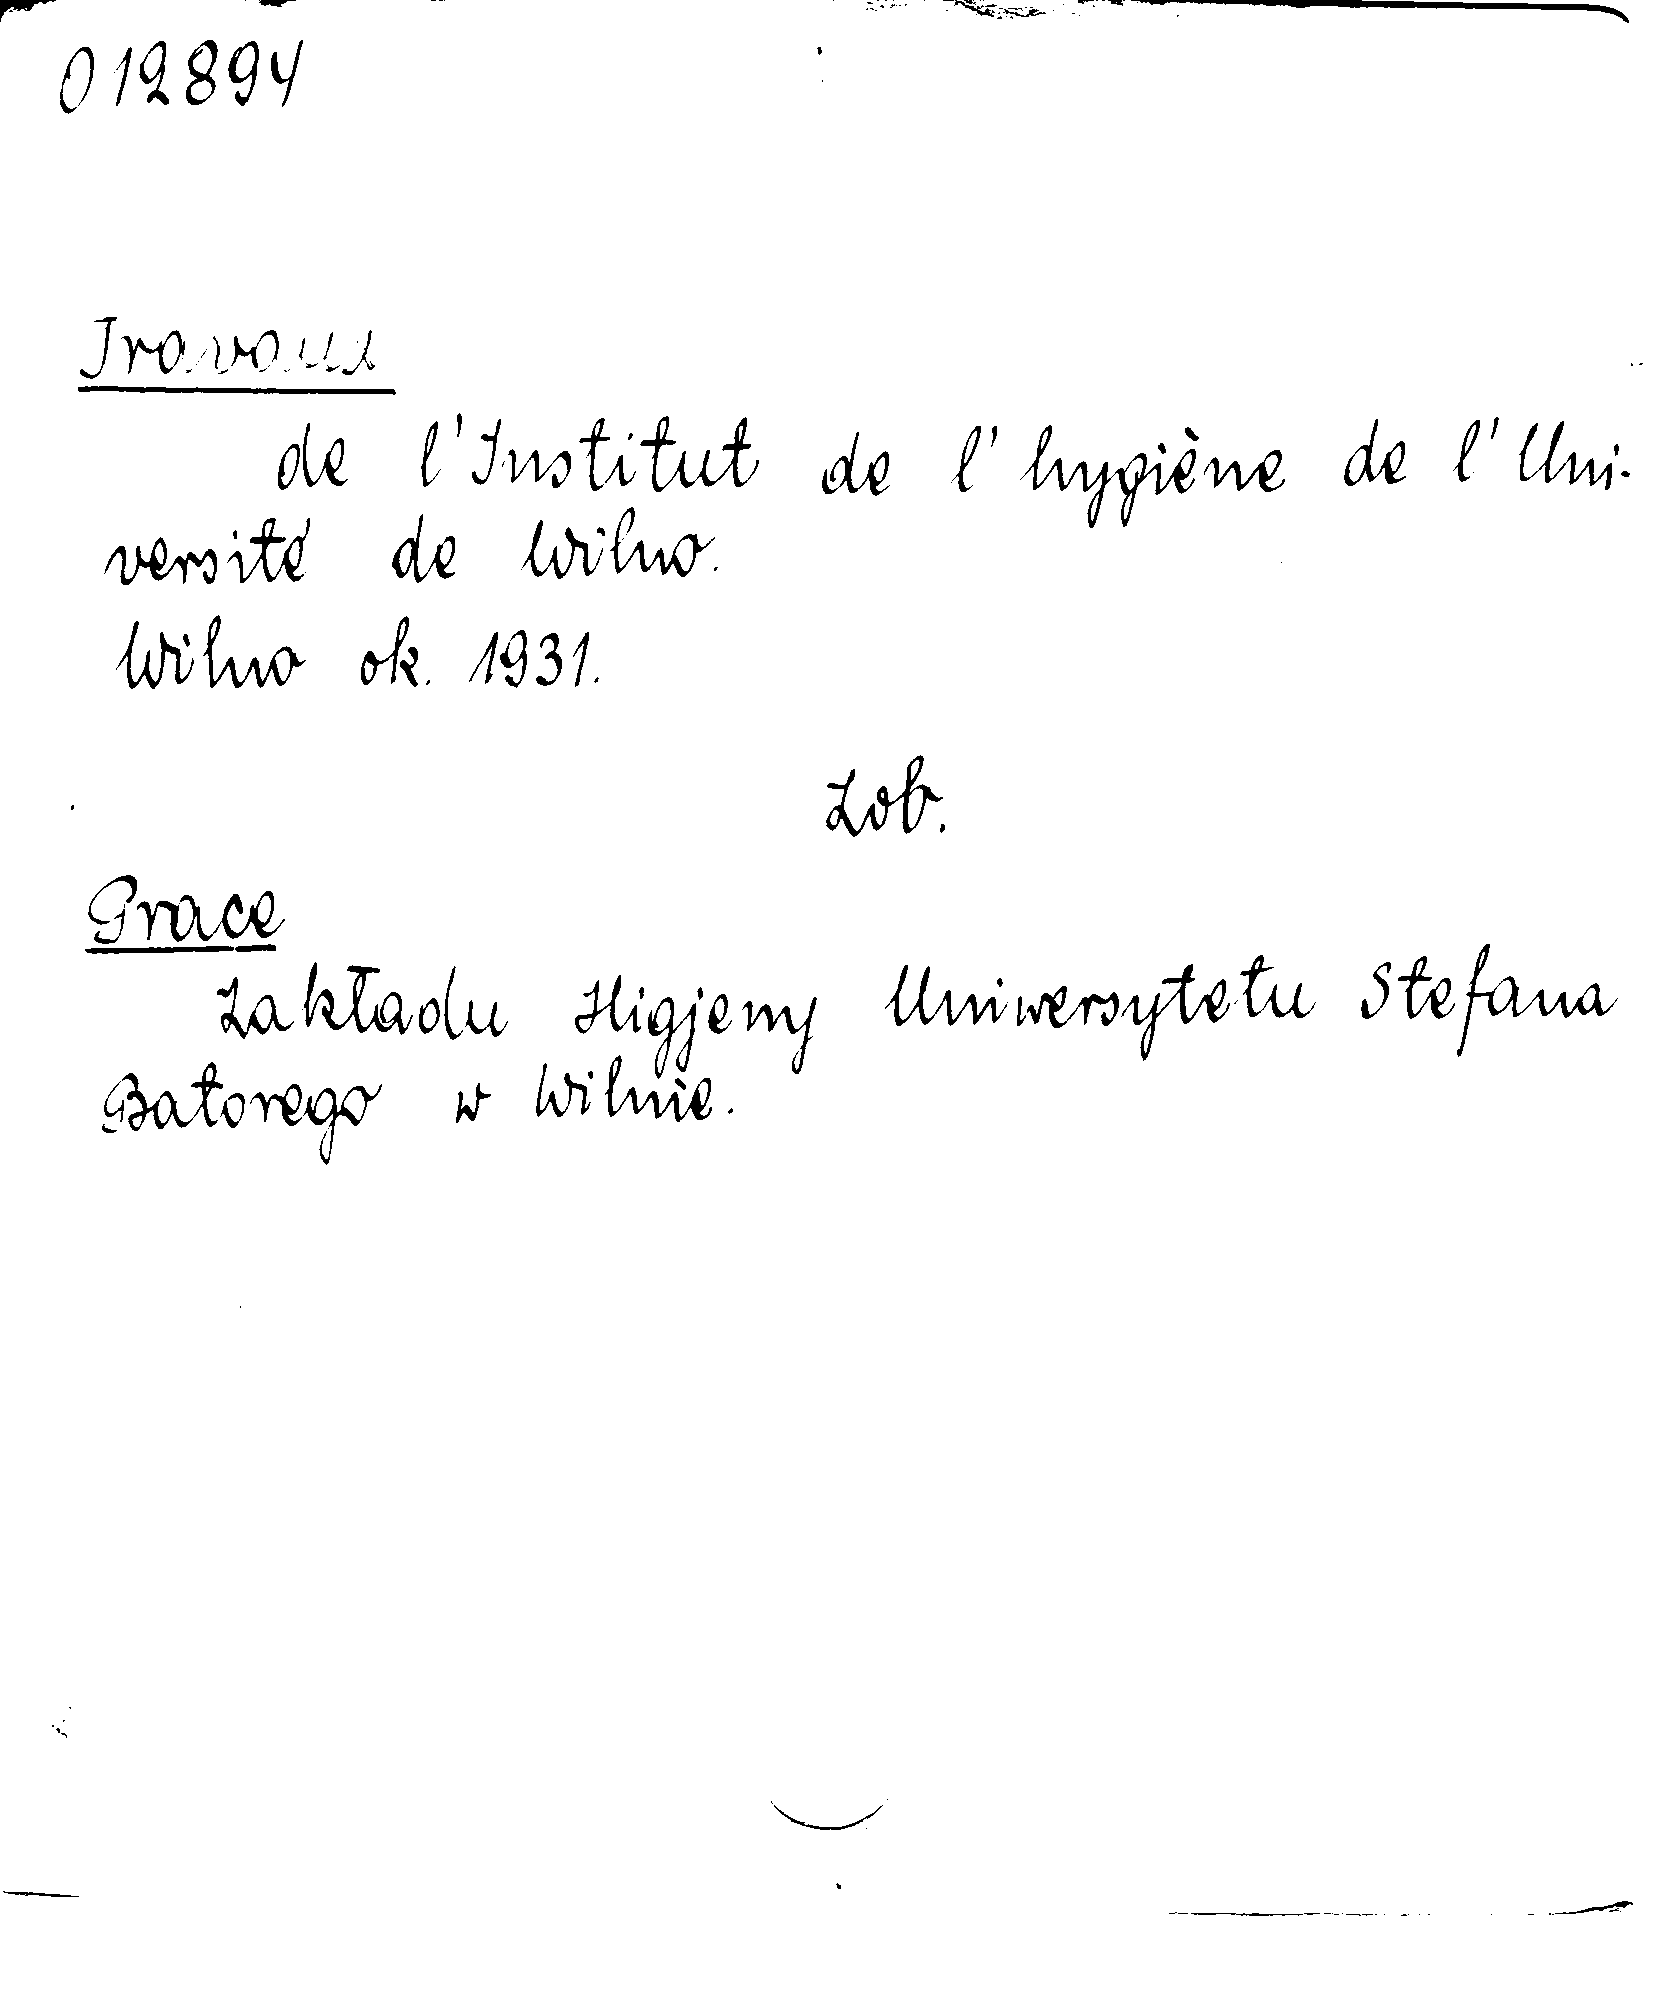 012894
Travaux
de l'Institut de l'hygiène de l'Uni-
versité de Wilno.
Wilno ok. 1931.
Zob.
Prace
Zakładu Higjeny Uniwersytetu Stefana
Batorego w Wilnie.